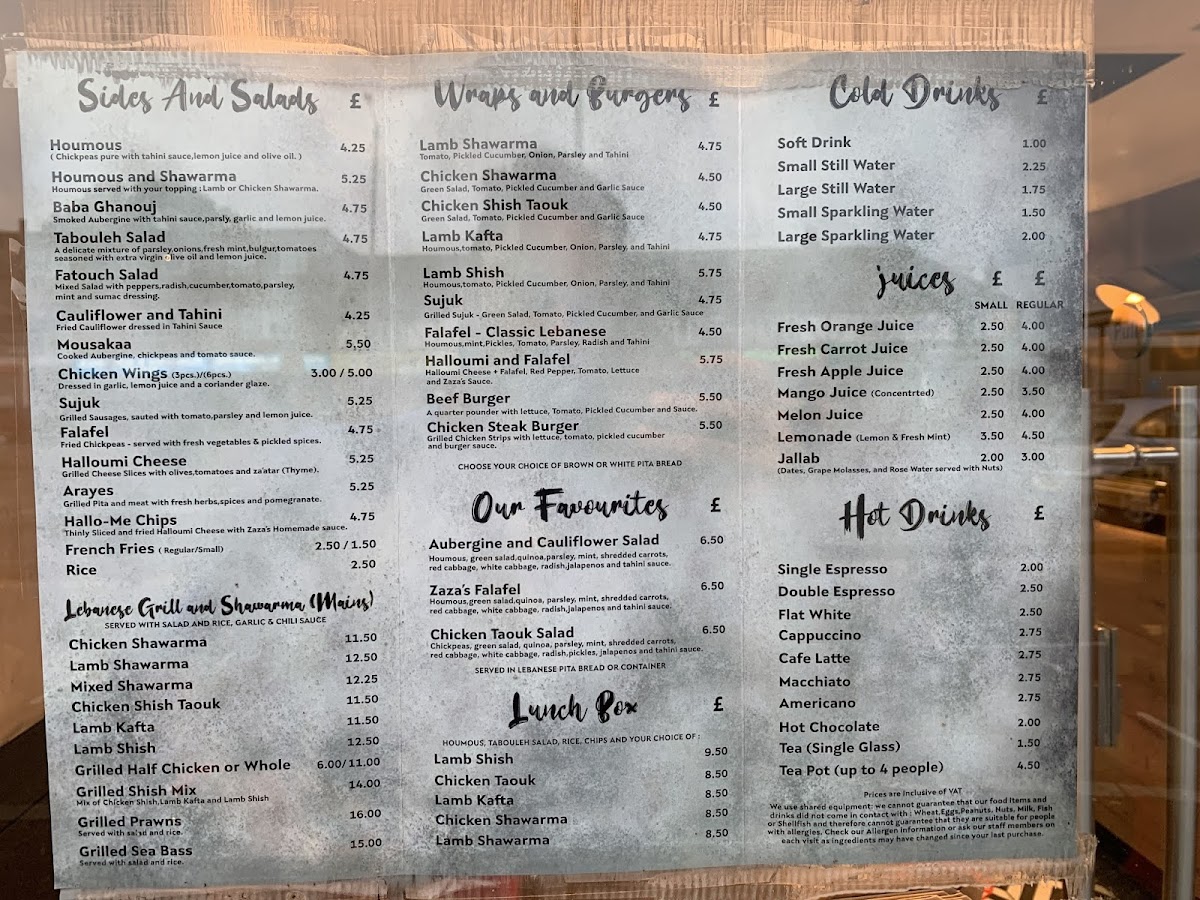 Sides And Salads £
Houmous 4.25
( Chickpeas pure with tahini sauce,lemon juice and olive oil. )
Houmous and Shawarma 5.25
Houmous served with your topping : Lamb or Chicken Shawarma.
Baba Ghanouj 4.75
Smoked Aubergine with tahini sauce,parsly, garlic and lemon juice.
Tabouleh Salad 4.75
A delicate mixture of parsley,onions,fresh mint,bulgur,tomatoes
seasoned with extra virgin olive oil and lemon juice.
Fatouch Salad 4.75
Mixed Salad with peppers,radish,cucumber,tomato,parsley,
mint and sumac dressing.
Cauliflower and Tahini 4.25
Fried Cauliflower dressed in Tahini Sauce
Mousakaa 5,50
Cooked Aubergine, chickpeas and tomato sauce.
Chicken Wings (3pcs.)/(6pcs.) 3.00 / 5.00
Dressed in garlic, lemon juice and a coriander glaze.
Sujuk 5.25
Grilled Sausages, sauted with tomato,parsley and lemon juice.
Falafel 4.75
Fried Chickpeas - served with fresh vegetables & pickled spices.
Halloumi Cheese 5.25
Grilled Cheese Slices with olives,tomatoes and za'atar (Thyme).
Arayes 5.25
Grilled Pita and meat with fresh herbs,spices and pomegranate.
Hallo-Me Chips 4.75
Thinly Sliced and fried Halloumi Cheese with Zaza's Homemade sauce.
French Fries ( Regular/Small) 2.50 / 1.50
Rice 2.50
Lebanese Grill and Shawarma (Mains)
SERVED WITH SALAD AND RICE, GARLIC & CHILI SAUCE
Chicken Shawarma 11.50
Lamb Shawarma 12.50
Mixed Shawarma 12.25
Chicken Shish Taouk 11.50
Lamb Kafta 11.50
Lamb Shish 12.50
Grilled Half Chicken or Whole 6.00/11.00
Grilled Shish Mix 14.00
Mix of Chicken Shish,Lamb Kafta and Lamb Shish
Grilled Prawns 16.00
Served with salsd and rice.
Grilled Sea Bass 15.00
Served with salad and rice.
Wraps and Burgers £
Lamb Shawarma 4.75
Tomato, Pickled Cucumber, Onion, Parsley and Tahini
Chicken Shawarma 4.50
Green Salad, Tomato, Pickled Cucumber and Garlic Sauce
Chicken Shish Taouk 4.50
Green Salad, Tomato, Pickled Cucumber and Garlic Sauce
Lamb Kafta 4.75
Houmous,tomato, Pickled Cucumber, Onion, Parsley, and Tahini
Lamb Shish 5.75
Houmous,tomato, Pickled Cucumber, Onion, Parsley, and Tahini
Sujuk 4.75
Grilled Sujuk - Green Salad, Tomato, Pickled Cucumber, and Garlic Sauce
Falafel - Classic Lebanese 4.50
Houmous,mint,Pickles, Tomato, Parsley, Radish and Tahini
Halloumi and Falafel 5.75
Halloumi Cheese + Falafel, Red Pepper, Tomato, Lettuce
and Zaza's Sauce.
Beef Burger 5.50
A quarter pounder with lettuce, Tomato, Pickled Cucumber and Sauce.
Chicken Steak Burger 5.50
Grilled Chicken Strips with lettuce, tomato, pickled cucumber
and burger sauce.
CHOOSE YOUR CHOICE OF BROWN OR WHITE PITA BREAD
Our Favourites £
Aubergine and Cauliflower Salad 6.50
Houmous, green salad,quinoa,parsley, mint, shredded carrots,
red cabbage, white cabbage, radish,jalapenos and tahini sauce.
Zaza's Falafel 6.50
Houmous,green salad,quinoa, parsley, mint, shredded carrots,
red cabbage, white cabbage, radish,jalapenos and tahini sauce.
Chicken Taouk Salad 6.50
Chickpeas, green salad, quinoa, parsley, mint, shredded carrots,
red cabbage, white cabbage, radish,pickles, jalapenos and tahini sauce.
SERVED IN LEBANESE PITA BREAD OR CONTAINER
Lunch Box £
HOUMOUS, TABOULEH SALAD, RICE, CHIPS AND YOUR CHOICE OF :
Lamb Shish 9.50
Chicken Taouk 8.50
Lamb Kafta 8.50
Chicken Shawarma 8.50
Lamb Shawarma 8.50
Cold Drinks £
Soft Drink 1.00
Small Still Water 2.25
Large Still Water 1.75
Small Sparkling Water 1.50
Large Sparkling Water 2.00
juices £ £
SMALL REGULAR
Fresh Orange Juice 2.50 4.00
Fresh Carrot Juice 2.50 4.00
Fresh Apple Juice 2.50 4.00
Mango Juice (Concentrted) 2.50 3.50
Melon Juice 2.50 4.00
Lemonade (Lemon & Fresh Mint) 3.50 4.50
Jallab 2.00 3.00
(Dates, Grape Molasses, and Rose Water served with Nuts)
Hot Drinks £
Single Espresso 2.00
Double Espresso 2.50
Flat White 2.50
Cappuccino 2.75
Cafe Latte 2.75
Macchiato 2.75
Americano 2.75
Hot Chocolate 2.00
Tea (Single Glass) 1.50
Tea Pot (up to 4 people) 4.50
Prices are inclusive of VAT
We use shared equipment; we cannot guarantee that our food items and
drinks did not come in contact with : Wheat,Eggs,Peahuts, Nuts, Milk, Fish
or Shellfish and therefore cannot guarantee that they are suitable for people
with allergies. Check our Allergen information or ask our staff members on
each visit as ingredients may have changed since your last purchase.
Pull